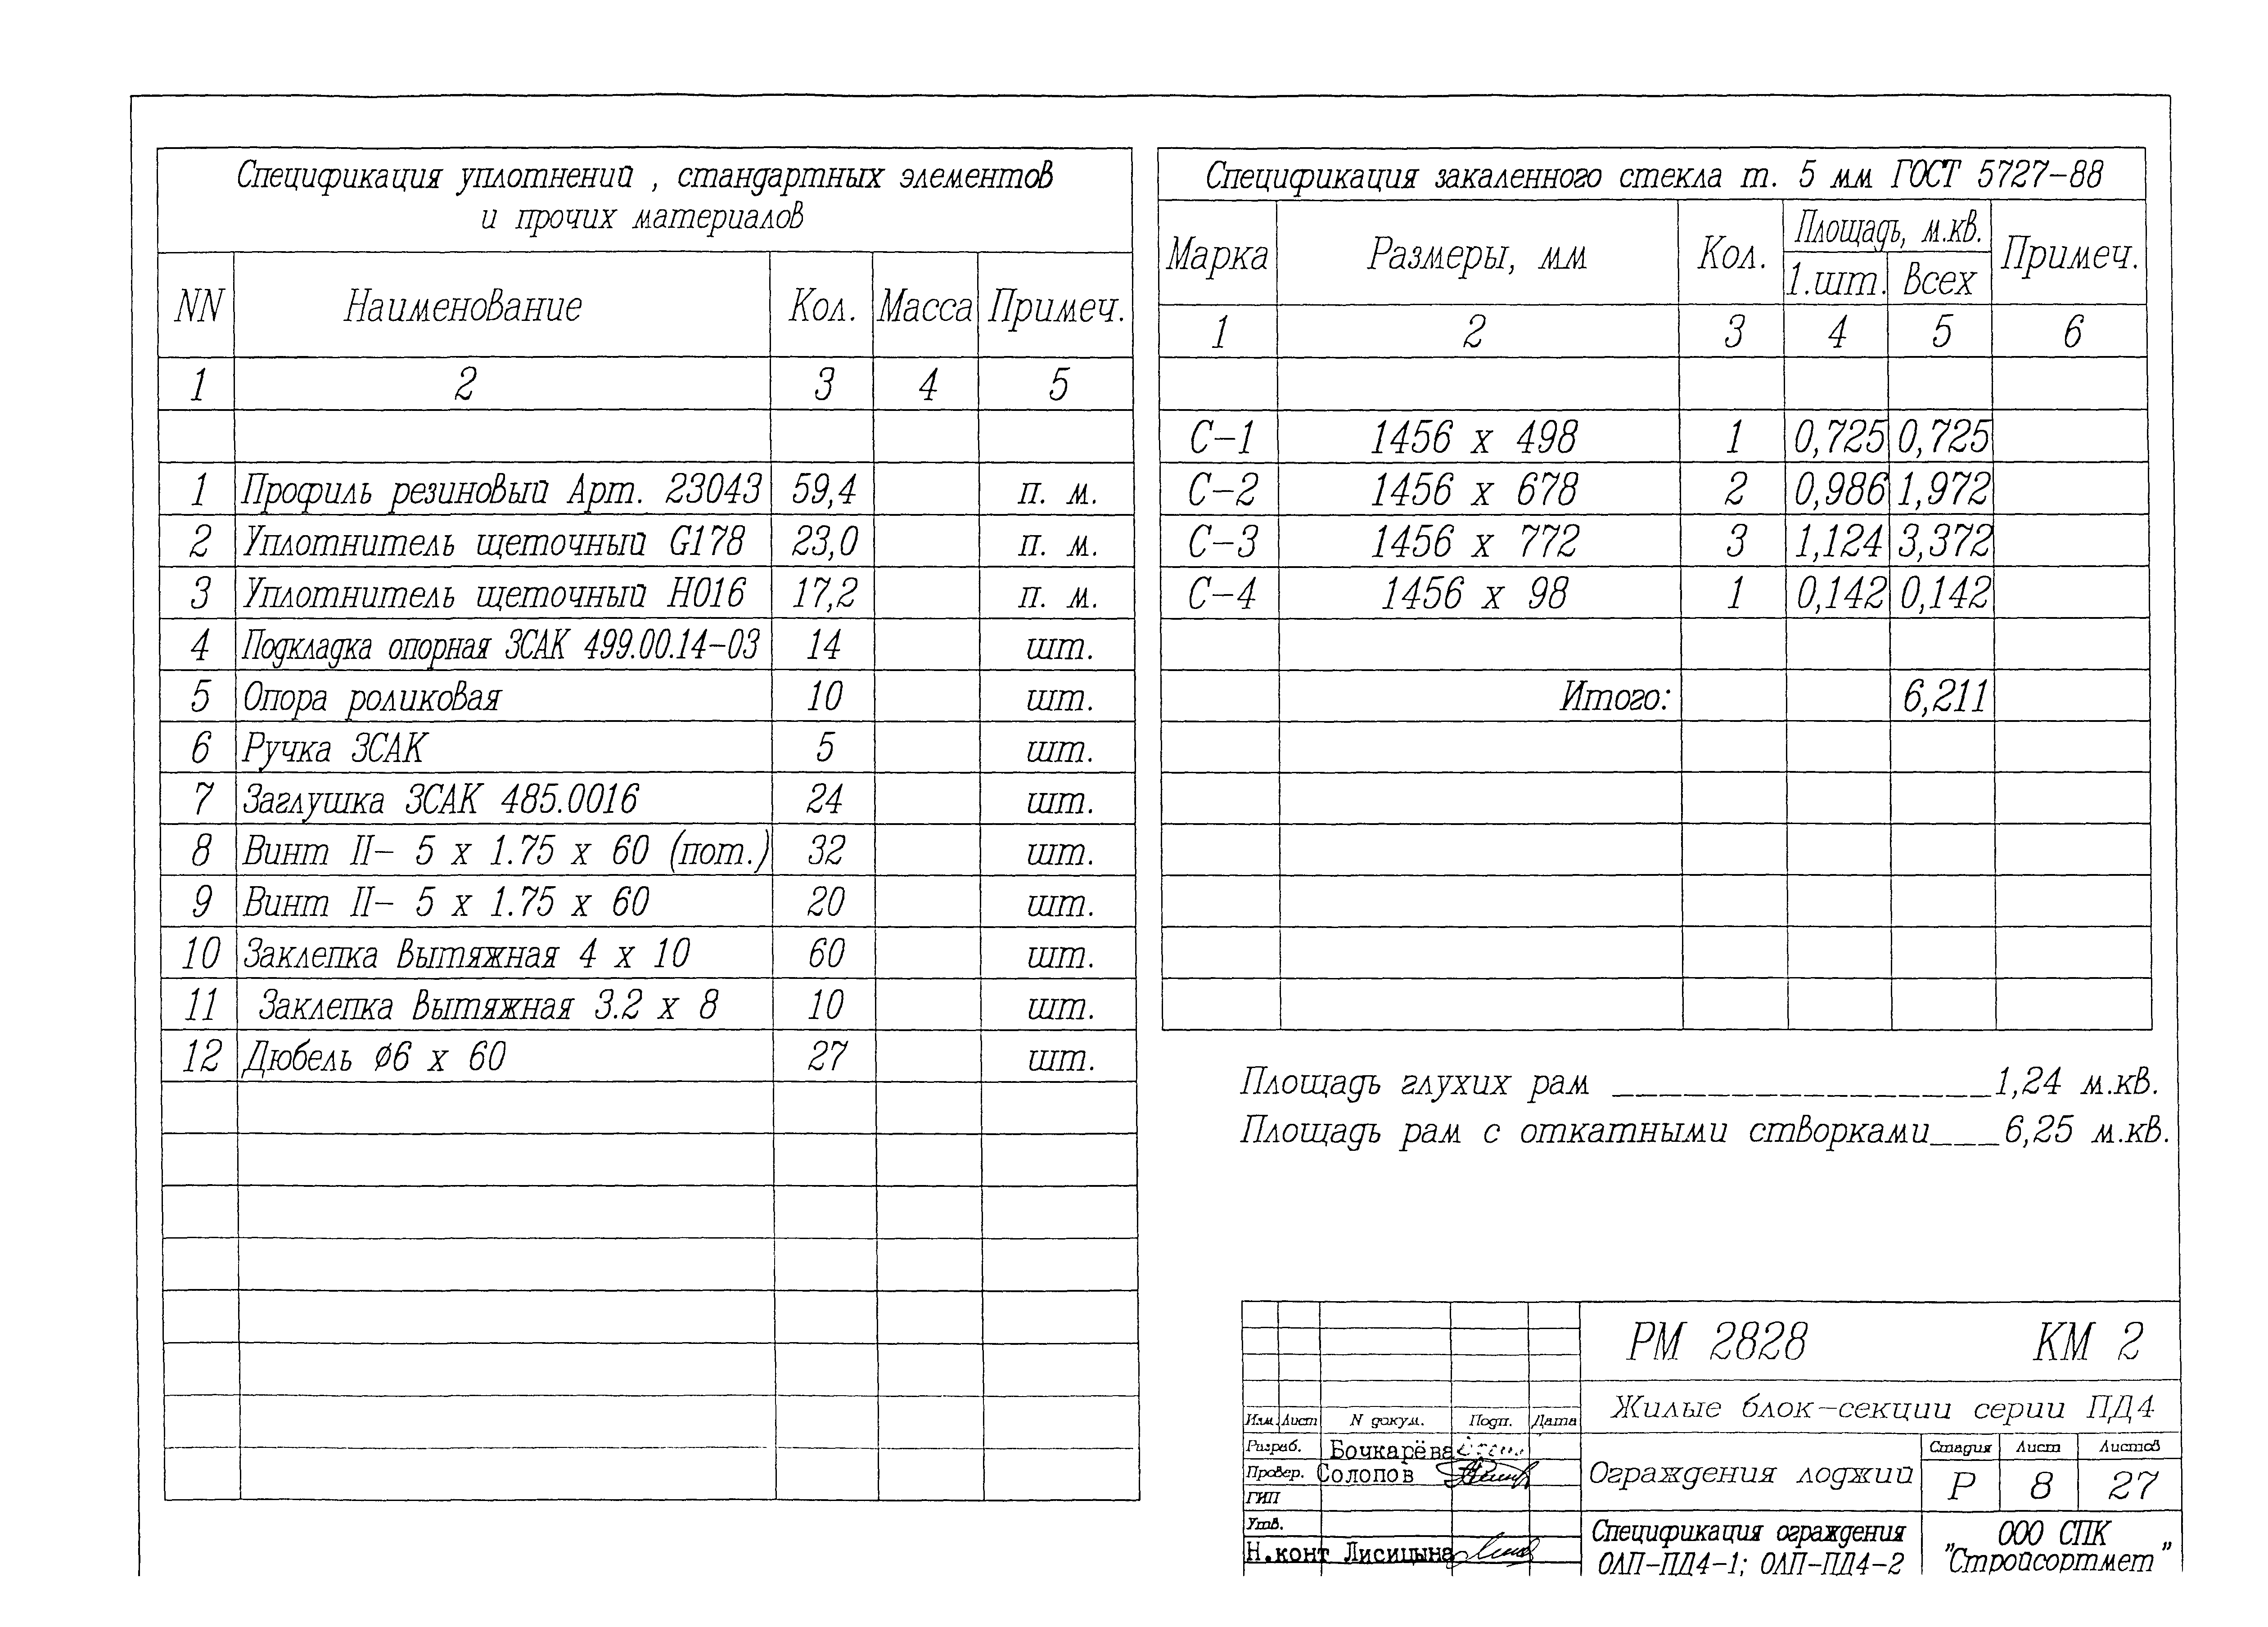 Спецификация уплотнений , стандартных элементов
и прочих материалов
NN Наименование Кол. Масса Примеч.
1 2 3 4 5
1 Профиль резиновый Арт. 23043 59,4 п. м.
2 Уплотнитель щеточный G178 23,0 п. м.
3 Уплотнитель щеточный Н016 17,2 п. м.
4 Подкладка опорная ЗСАК 499.00.14-03 14 шт.
5 Опора роликовая 10 шт.
6 Ручка ЗСАК 5 шт.
7 Заглушка ЗСАК 485.0016 24 шт.
8 Винт II- 5 х 1.75 х 60 (пот.) 32 шт.
9 Винт II- 5 х 1.75 х 60 20 шт.
10 Заклепка вытяжная 4 х 10 60 шт.
11 Заклепка вытяжная 3.2 х 8 10 шт.
12 Дюбель ø6 х 60 27 шт.
Спецификация закаленного стекла т. 5 мм ГОСТ 5727-88
Марка Размеры, мм Кол. Площадь, м.кв. Примеч.
1.шт. всех
1 2 3 4 5 6
С-1 1456 х 498 1 0,725 0,725
С-2 1456 х 678 2 0,986 1,972
С-3 1456 х 772 3 1,124 3,372
С-4 1456 х 98 1 0,142 0,142
Итого: 6,211
Площадь глухих рам __________________1,24 м.кв.
Площадь рам с откатными створками___6,25 м.кв.
РМ 2828 КМ 2
Жилые блок-секции серии ПД4
Изм. Лист N докум. Подп. Дата
Разраб. Бочкарёва
Провер. Солопов
ГИП
Утв.
Н.конт Лисицына
Ограждения лоджий
Стадия Лист Листов
Р 8 27
Спецификация ограждения
ОЛП-ПД4-1; ОЛП-ПД4-2
ООО СПК
"Стройсортмет"